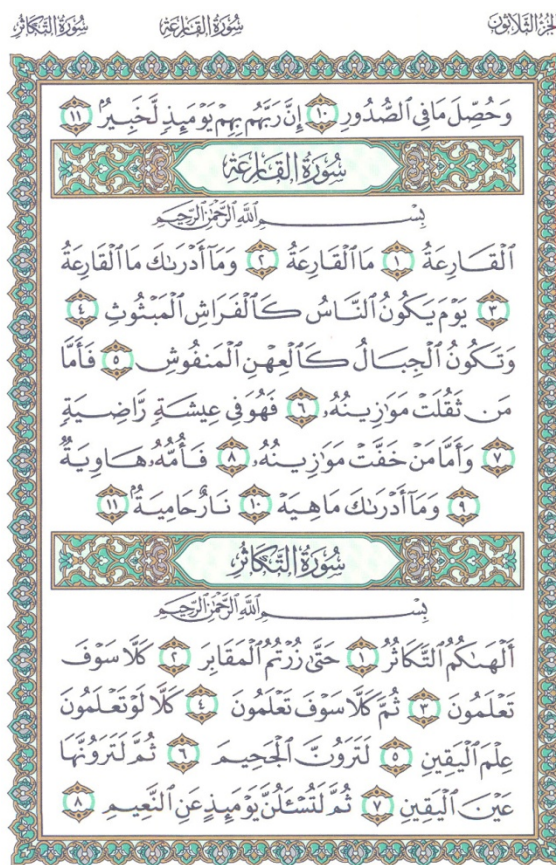 الجزء الثلاثون
سُورَةُ القَارِعَةِ
سُورَةُ التَّكَاثُرِ
وَحُصِّلَ مَا فِي ٱلصُّدُورِ ١٠ إِنَّ رَبَّهُم بِهِمْ يَوْمَئِذٍ لَّخَبِيرٌۢ ١١
سُورَةُ القَارِعَةِ
بِسْمِ ٱللَّهِ ٱلرَّحْمَٰنِ ٱلرَّحِيمِ
ٱلْقَارِعَةُ ١ مَا ٱلْقَارِعَةُ ٢ وَمَآ أَدْرَىٰكَ مَا ٱلْقَارِعَةُ
٣ يَوْمَ يَكُونُ ٱلنَّاسُ كَٱلْفَرَاشِ ٱلْمَبْثُوثِ ٤
وَتَكُونُ ٱلْجِبَالُ كَٱلْعِهْنِ ٱلْمَنفُوشِ ٥ فَأَمَّا
مَن ثَقُلَتْ مَوَٰزِينُهُۥ ٦ فَهُوَ فِى عِيشَةٍ رَّاضِيَةٍ
٧ وَأَمَّا مَنْ خَفَّتْ مَوَٰزِينُهُۥ ٨ فَأُمُّهُۥ هَاوِيَةٌ
٩ وَمَآ أَدْرَىٰكَ مَا هِيَهْ ١٠ نَارٌ حَامِيَةٌۢ ١١
سُورَةُ التَّكَاثُرِ
بِسْمِ ٱللَّهِ ٱلرَّحْمَٰنِ ٱلرَّحِيمِ
أَلْهَىٰكُمُ ٱلتَّكَاثُرُ ١ حَتَّىٰ زُرْتُمُ ٱلْمَقَابِرَ ٢ كَلَّا سَوْفَ
تَعْلَمُونَ ٣ ثُمَّ كَلَّا سَوْفَ تَعْلَمُونَ ٤ كَلَّا لَوْ تَعْلَمُونَ
عِلْمَ ٱلْيَقِينِ ٥ لَتَرَوُنَّ ٱلْجَحِيمَ ٦ ثُمَّ لَتَرَوُنَّهَا
عَيْنَ ٱلْيَقِينِ ٧ ثُمَّ لَتُسْـَٔلُنَّ يَوْمَئِذٍ عَنِ ٱلنَّعِيمِ ٨